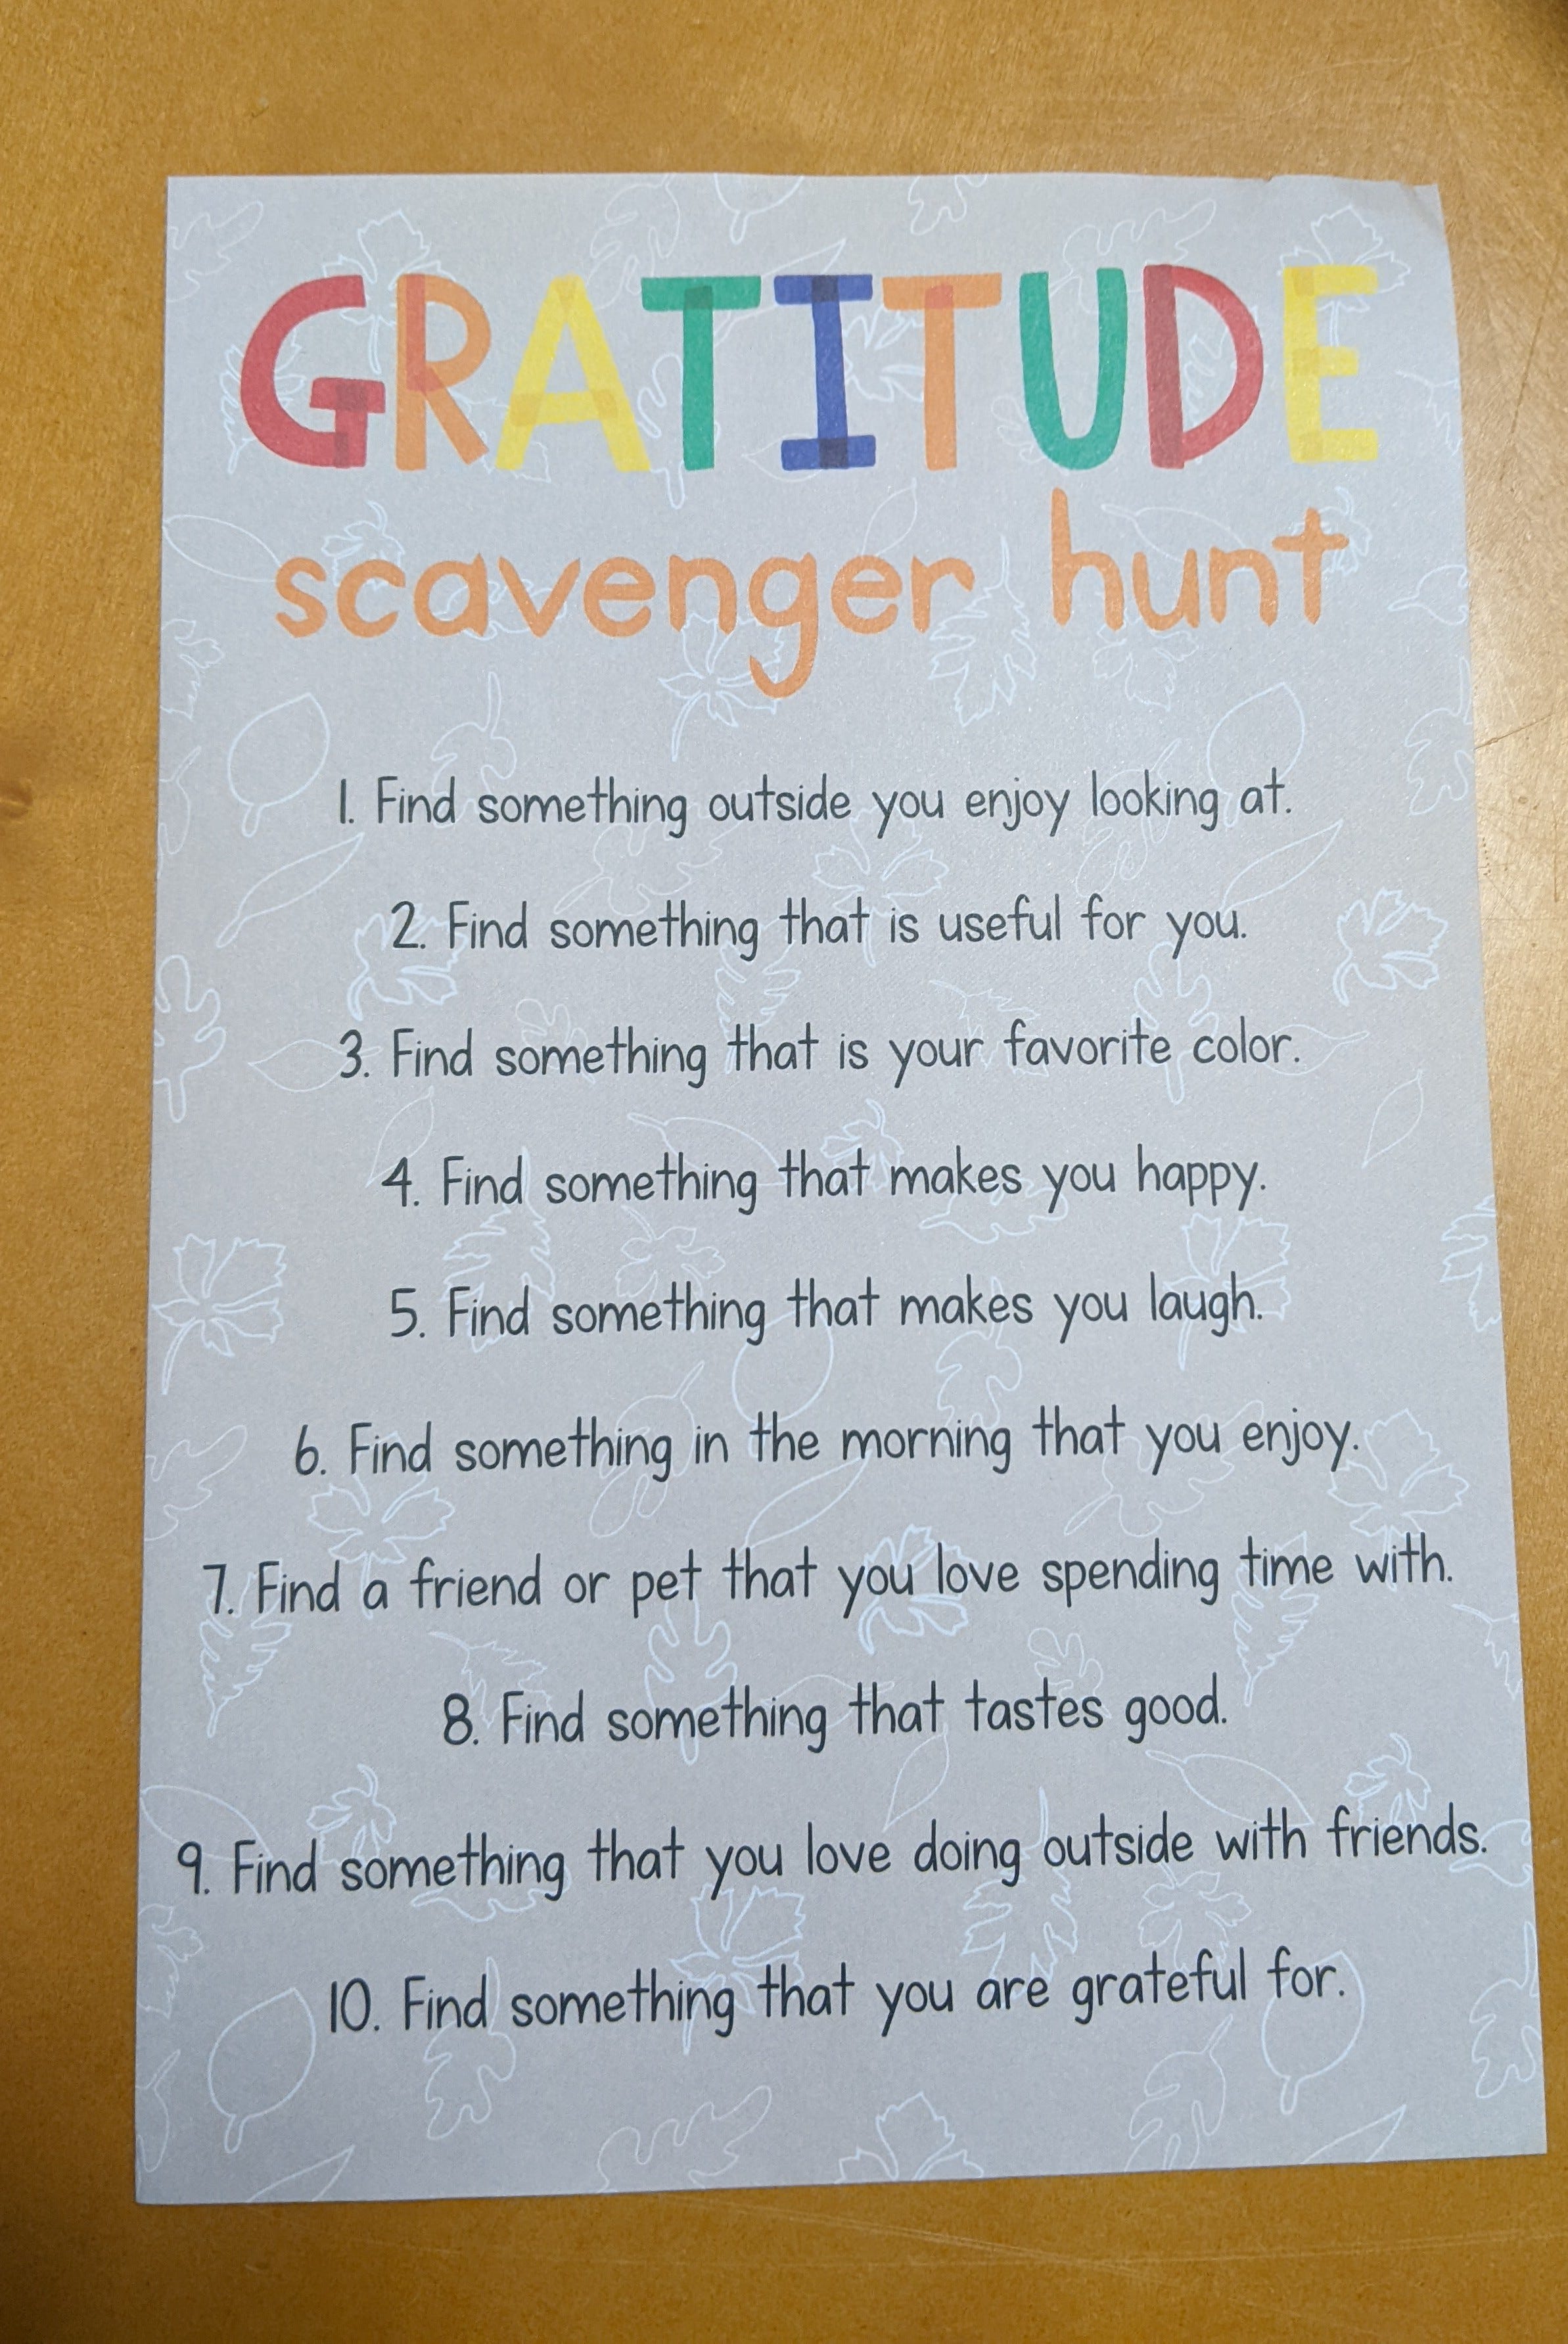 GRATITUDE
scavenger hunt
1. Find something outside you enjoy looking at.
2. Find something that is useful for you.
3. Find something that is your favorite color.
4. Find something that makes you happy.
5. Find something that makes you laugh.
6. Find something in the morning that you enjoy.
7. Find a friend or pet that you love spending time with.
8. Find something that tastes good.
9. Find something that you love doing outside with friends.
10. Find something that you are grateful for.